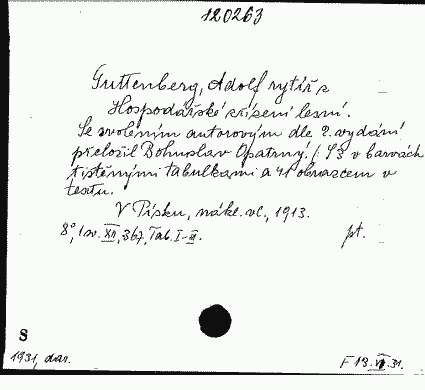 120263
Guttenberg, Adolf rytíř z
Hospodářské zřízení lesní.
Se svolením autorovým dle 2. vydání
přeložil Bohuslav Opatrný. /: S 3 v barvách
tištěnými tabulkami a 41 obrazcem v
textu.
V Písku, nákl. vl., 1913.
8°, 1 sv. XII, 367, Tab. I-III. pt.
S
1931, dar. F 13.VI.31.